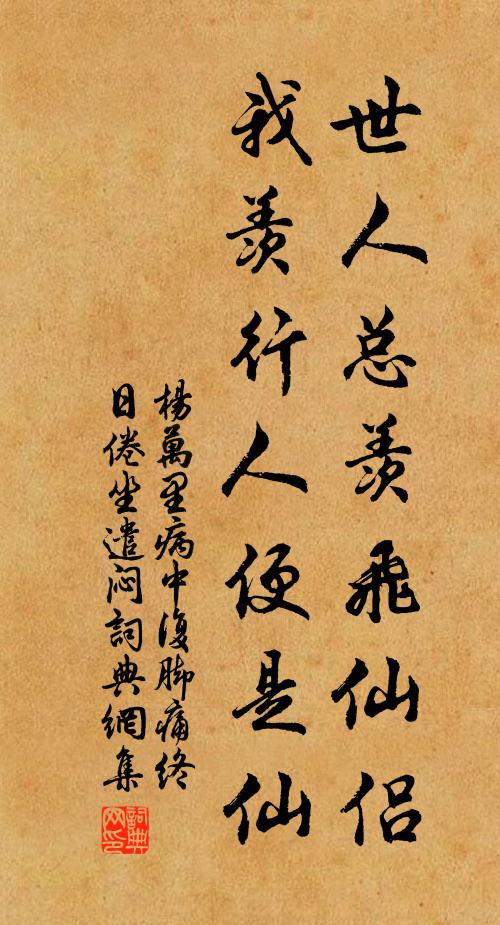 世人总羡飛仙侣
我羡行人便是仙
楊萬里病中復脚痛終
日倦坐遣闷詞典網集
詞典网印